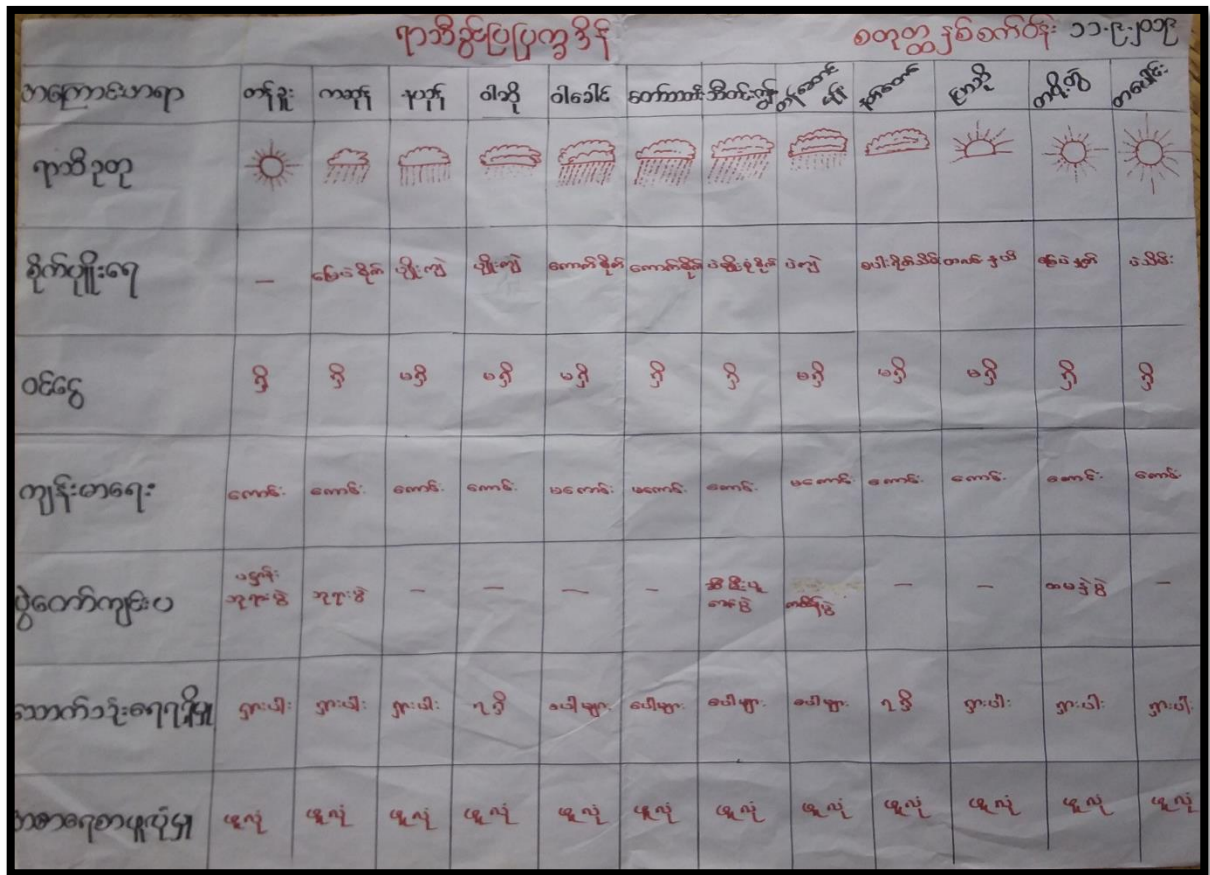 ရာသီခွင်ပြပြက္ခဒိန် စတုတ္ထနှစ်စက်ဝန်း ၁၁.၉.၂၀၁၉
အကြောင်းအရာ တန်ခူး ကဆုန် နယုန် ဝါဆို ဝါခေါင် တော်သလင်း သီတင်းကျွတ် တန်ဆောင်မုန်း နတ်တော် ပြာသို တပို့တွဲ တပေါင်း
ရာသီဥတု
စိုက်ပျိုးရေး — မြေပဲစိုက် ပျိုးကြဲ ပျိုးကြဲ ကောက်စိုက် ကောက်စိုက် ပဲကြဲ မြေပဲနှုတ် ပဲသိမ်း
ဝင်ငွေ ရှိ ရှိ မရှိ မရှိ မရှိ ရှိ ရှိ မရှိ မရှိ မရှိ ရှိ ရှိ
ကျန်းမာရေး ကောင်း ကောင်း ကောင်း ကောင်း မကောင်း မကောင်း ကောင်း မကောင်း ကောင်း ကောင်း ကောင်း ကောင်း
ပွဲတော်ကျင်းပ ဘုရားပွဲ ဘုရားပွဲ — — — — ဆီမီးပူဇော်ပွဲ ကထိန်ပွဲ — — ထမနဲပွဲ —
သောက်သုံးရေရရှိမှု ရှားပါး ရှားပါး ရှားပါး ရရှိ ပေါများ ပေါများ ပေါများ ပေါများ ရရှိ ရှားပါး ရှားပါး ရှားပါး
အစားရေစာဖူလုံမှု ဖူလုံ ဖူလုံ ဖူလုံ ဖူလုံ ဖူလုံ ဖူလုံ ဖူလုံ ဖူလုံ ဖူလုံ ဖူလုံ ဖူလုံ ဖူလုံ